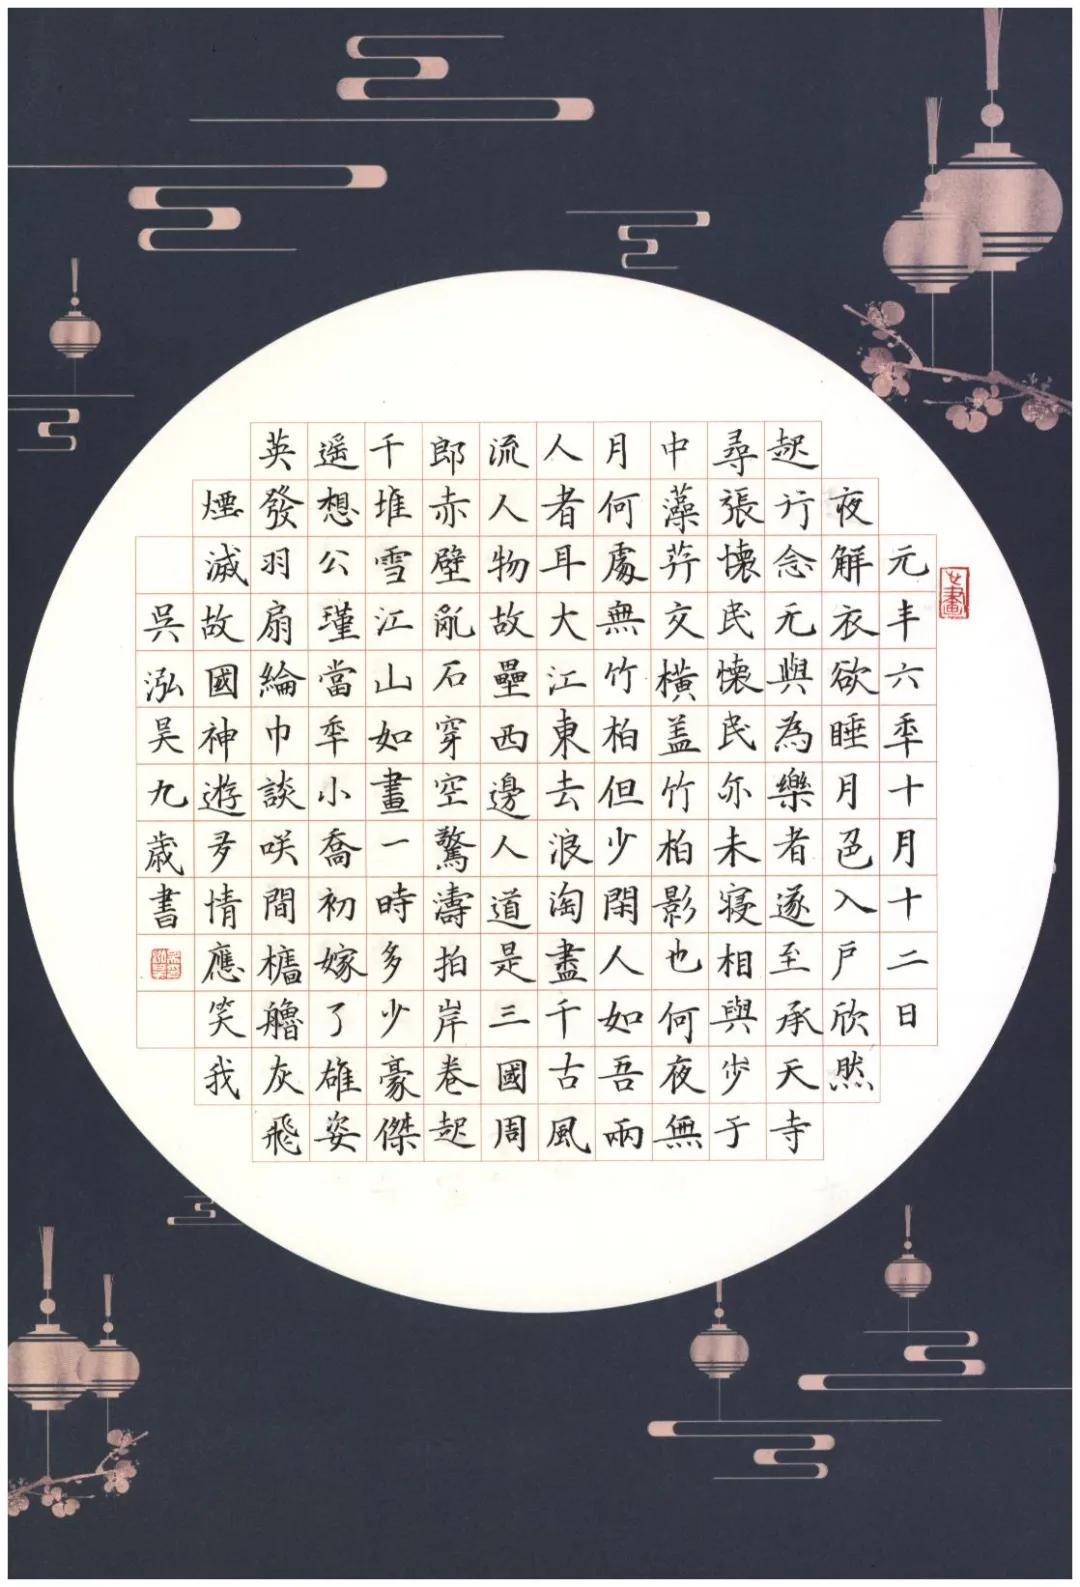 元丰六年十月十二日
夜解衣欲睡月色入戶欣然
起行念无與為樂者遂至承天寺
尋張懷民懷民亦未寢相與步于
中藻荇交橫蓋竹柏影也何夜無
月何處無竹柏但少閑人如吾兩
人者耳大江東去浪淘盡千古風
流人物故壘西邊人道是三國周
郎赤壁亂石穿空驚濤拍岸卷起
千堆雪江山如畫一時多少豪傑
遥想公瑾當年小喬初嫁了雄姿
英發羽扇綸巾談咲間檣艪灰飛
煙滅故國神遊多情應笑我
吳泓昊九歲書